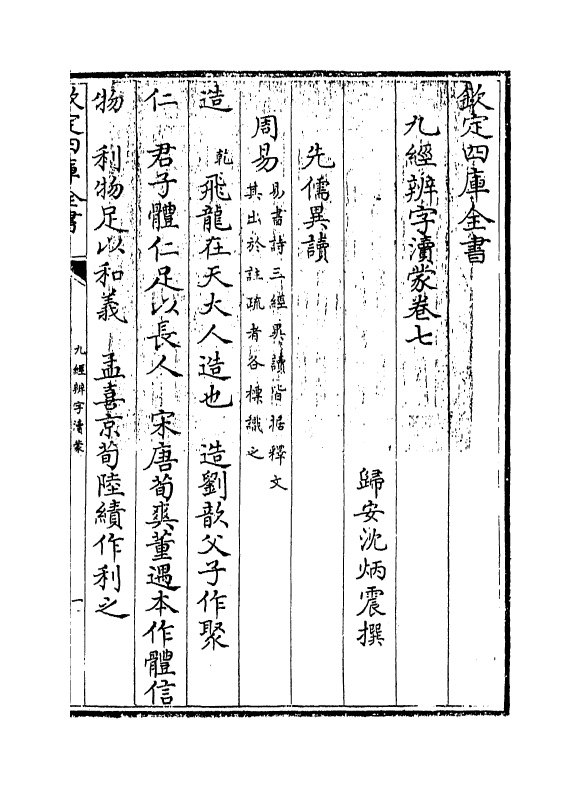 欽定四庫全書
九經辨字瀆蒙卷七
歸安沈炳震撰
先儒異讀
周易易書詩三經異讀皆据釋文
其出於註疏者各標識之
造乾飛龍在天大人造也　造劉歆父子作聚
仁　君子體仁足以長人　宋唐荀爽董遇本作體信
物　利物足以和義　孟喜京荀陸績作利之
欽定四庫全書
九經辨字瀆蒙
一